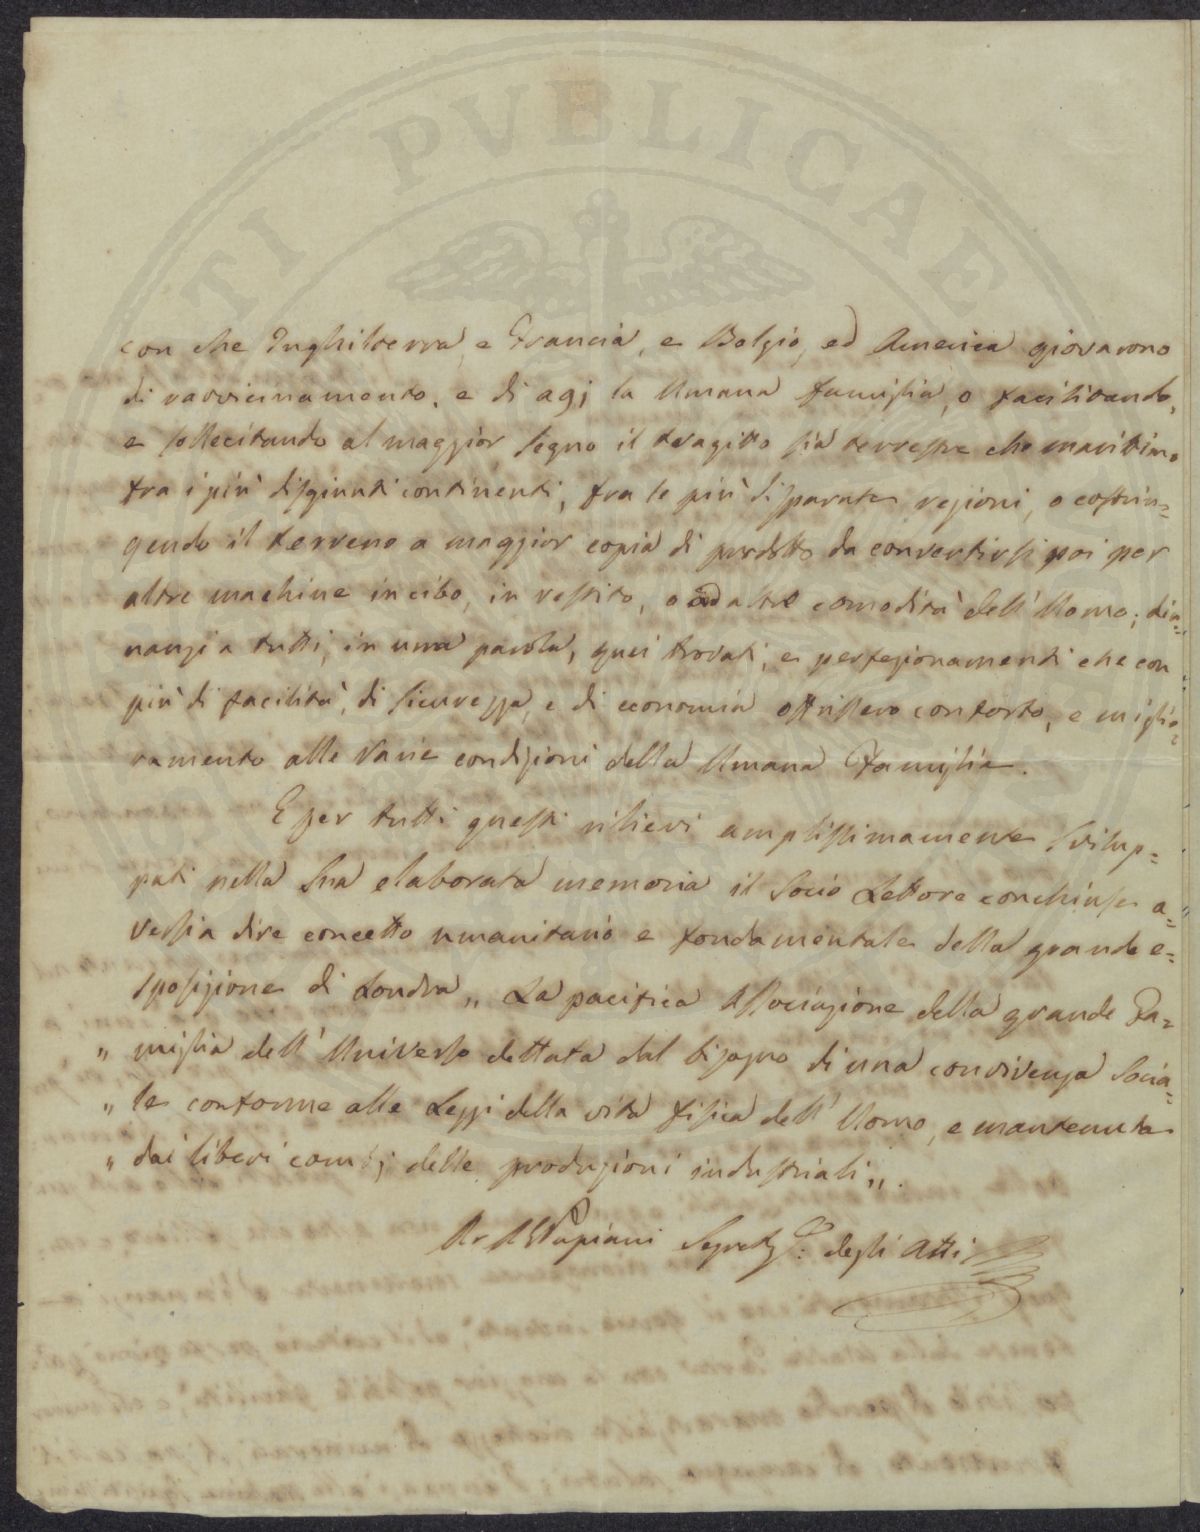 con che Inghilterra, e Francia, e Belgio, ed America giovarono
di ravvicinamento, e di agj la Umana famiglia, o facilitando,
e sollecitando al maggior segno il tragitto sia terrestre che marittimo
fra i più disgiunti continenti, fra le più disparate regioni, o costrin=
gendo il terreno a maggior copia di prodotto da convertirsi poi per
altre machine in cibo, in vestito, o ad altre comodità dell' Uomo; din=
nanzi a tutti, in una parola, quei trovati, e perfezionamenti che con
più di facilità, di sicurezza, e di economia offrissero conforto, e miglio=
ramento alle varie condizioni della Umana Famiglia.
E per tutti questi rilievi amplissimamente svilup=
pati nella sua elaborata memoria il Socio Lettore conchiuse a=
versi a dire concetto umanitario e fondamentale della grande e=
sposizione di Londra „ La pacifica Associazione della grande Fa=
„ miglia dell' Universo dettata dal bisogno di una convivenza socia=
„ le conforme alle Leggi della vita fisica dell' Uomo, e mantenuta
„ dai liberi cambj delle produzioni industriali „.
Papiani Segret.º degli Atti
PVBLICAE